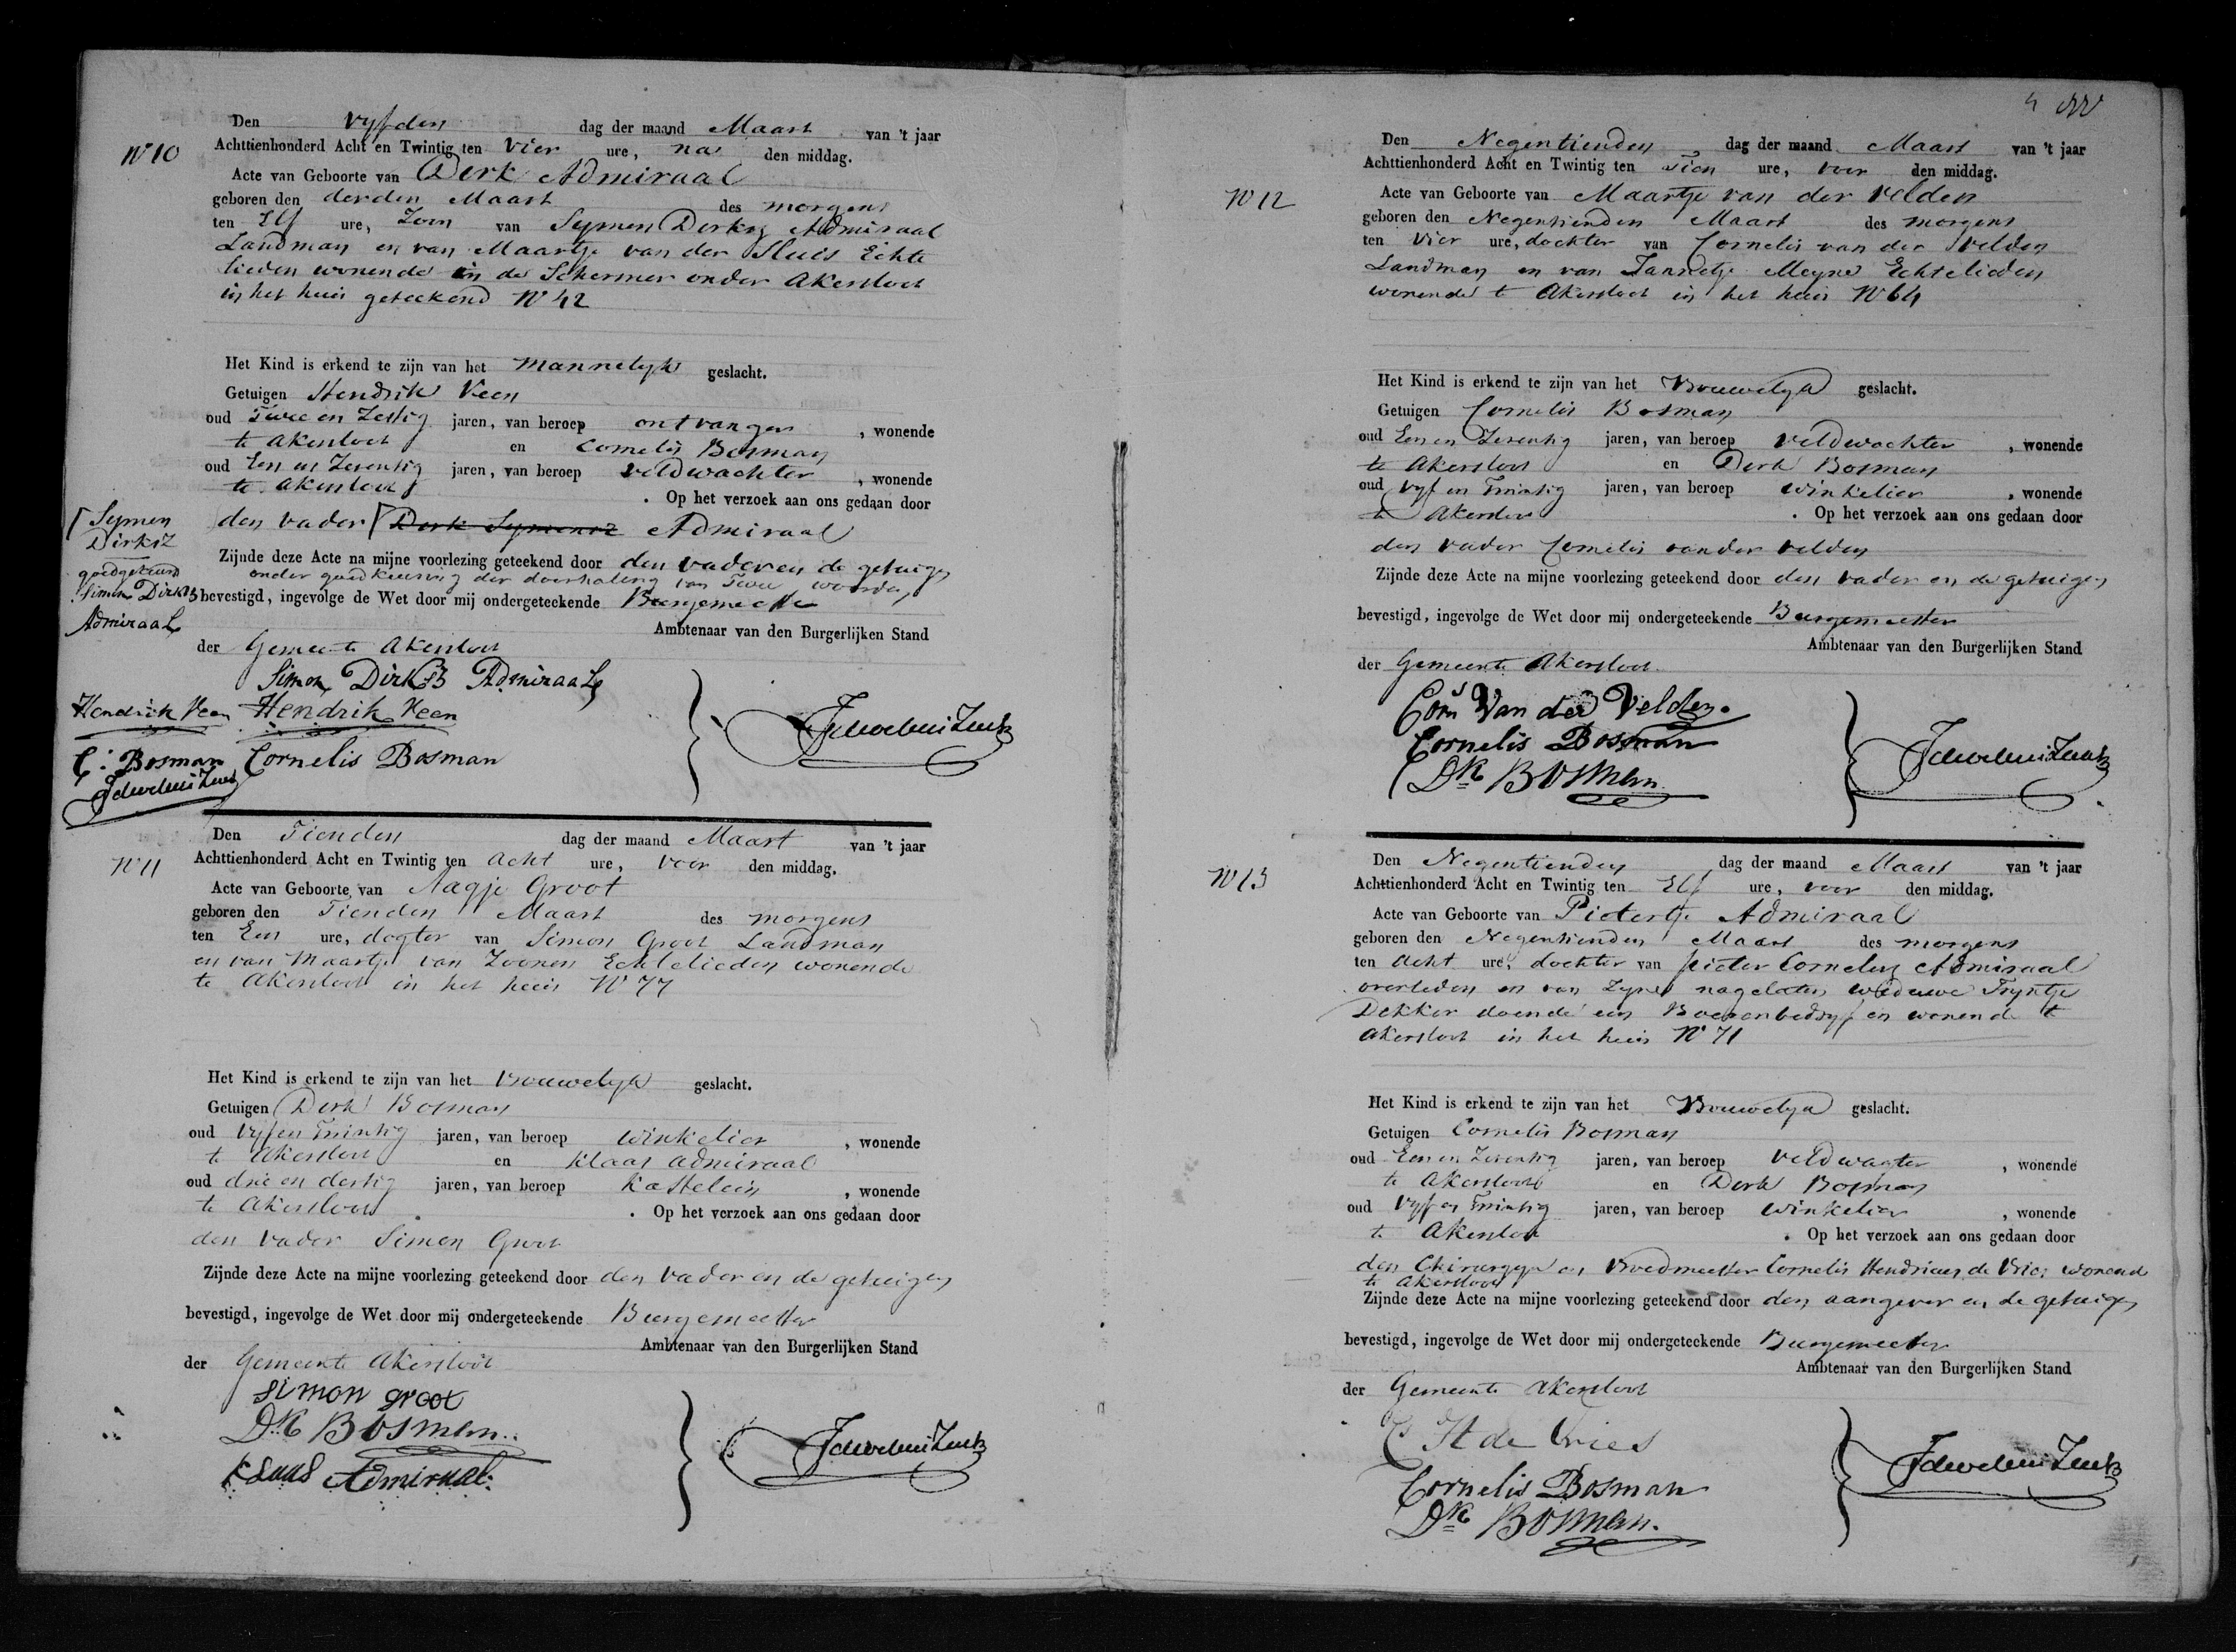 Den vyfden dag der maand Maart van 't jaar
N° 10
Achttienhonderd Acht en Twintig ten vier ure, na den middag.
Acte van Geboorte van Derk Admiraal
geboren den derden Maart des morgens
ten Elf ure, Zoon van Symen Derksz Admiraal
Landman en van Maartje van der Sluis Echte
lieden wonende in de Schermer onder Akersloot
in het huis geteekend N° 42
Het Kind is erkend te zijn van het Mannelyk geslacht.
Getuigen Hendrik Veen
oud Twee en Zestig jaren, van beroep ontvanger , wonende
te Akersloot en Cornelis Bosman
oud Een en Zeventig jaren, van beroep veldwachter , wonende
te Akersloot . Op het verzoek aan ons gedaan door
den vader Derk Symensz Admiraal
Symen
Dirksz
goedgekeurd
Simon Dirksz
Admiraal
Zijnde deze Acte na mijne voorlezing geteekend door den vader en de getuigen
onder goedkeuring der doorhaling van Twee woorden
bevestigd, ingevolge de Wet door mij ondergeteekende Burgemeester
Ambtenaar van den Burgerlijken Stand
der Gemeente Akersloot
Simon DirksZ Admiraal
Hendrik Veen Hendrik Veen
C: Bosman Cornelis Bosman
Den Tienden dag der maand Maart van 't jaar
N° 11
Achttienhonderd Acht en Twintig ten Acht ure, voor den middag.
Acte van Geboorte van Aagje Groot
geboren den Tienden Maart des morgens
ten Een ure, dogter van Simon Groot Landman
en van Maartje van Zoonen Echtelieden wonende
te Akersloot in het huis N° 77
Het Kind is erkend te zijn van het Vrouwelyk geslacht.
Getuigen Derk Bosman
oud Vyf en Twintig jaren, van beroep Winkelier , wonende
te Akersloot en Klaas Admiraal
oud drie en dertig jaren, van beroep Kastelein , wonende
te Akersloot . Op het verzoek aan ons gedaan door
den vader Simon Groot
Zijnde deze Acte na mijne voorlezing geteekend door den vader en de getuigen
bevestigd, ingevolge de Wet door mij ondergeteekende Burgemeester
Ambtenaar van den Burgerlijken Stand
der Gemeente Akersloot
Simon groot
Dk Bosman
Klaas Admiraal
Den Negentienden dag der maand Maart van 't jaar
Achttienhonderd Acht en Twintig ten Tien ure, voor den middag.
N° 12
Acte van Geboorte van Maartje van der Velden
geboren den Negentienden Maart des morgens
ten vier ure, dochter van Cornelis van der Velden
Landman en van Jannetje Meyne Echtelieden
wonende te Akersloot in het huis N° 64
Het Kind is erkend te zijn van het Vrouwelyk geslacht.
Getuigen Cornelis Bosman
oud Een en Zeventig jaren, van beroep veldwachter , wonende
te Akersloot en Derk Bosman
oud vyf en Twintig jaren, van beroep winkelier , wonende
te Akersloot . Op het verzoek aan ons gedaan door
den vader Cornelis van der velden
Zijnde deze Acte na mijne voorlezing geteekend door den vader en de getuigen
bevestigd, ingevolge de Wet door mij ondergeteekende Burgemeester
Ambtenaar van den Burgerlijken Stand
der Gemeente Akersloot
Corns Van der Velden.
Cornelis Bosman
Dk Bosman
Den Negentienden dag der maand Maart van 't jaar
N° 13
Achttienhonderd Acht en Twintig ten Elf ure, voor den middag.
Acte van Geboorte van Pietertje Admiraal
geboren den Negentienden Maart des morgens
ten Acht ure, dochter van Pieter Cornelisz Admiraal
overleden en van Zyne nagelaten weduwe Tryntje
Dekker doende een Boerenbedryf en wonende te
Akersloot in het huis N° 71
Het Kind is erkend te zijn van het Vrouwelyk geslacht.
Getuigen Cornelis Bosman
oud Een en Zeventig jaren, van beroep Veldwagter , wonende
te Akersloot en Derk Bosman
oud Vyf en Twintig jaren, van beroep Winkelier , wonende
te Akersloot . Op het verzoek aan ons gedaan door
den Chirurgyn en Vroedmeester Cornelis Hendricus de Vries wonend
te Akersloot
Zijnde deze Acte na mijne voorlezing geteekend door den aangever en de getuigen
bevestigd, ingevolge de Wet door mij ondergeteekende Burgemeester
Ambtenaar van den Burgerlijken Stand
der Gemeente Akersloot
C H de Vries
Cornelis Bosman
Dk Bosman.